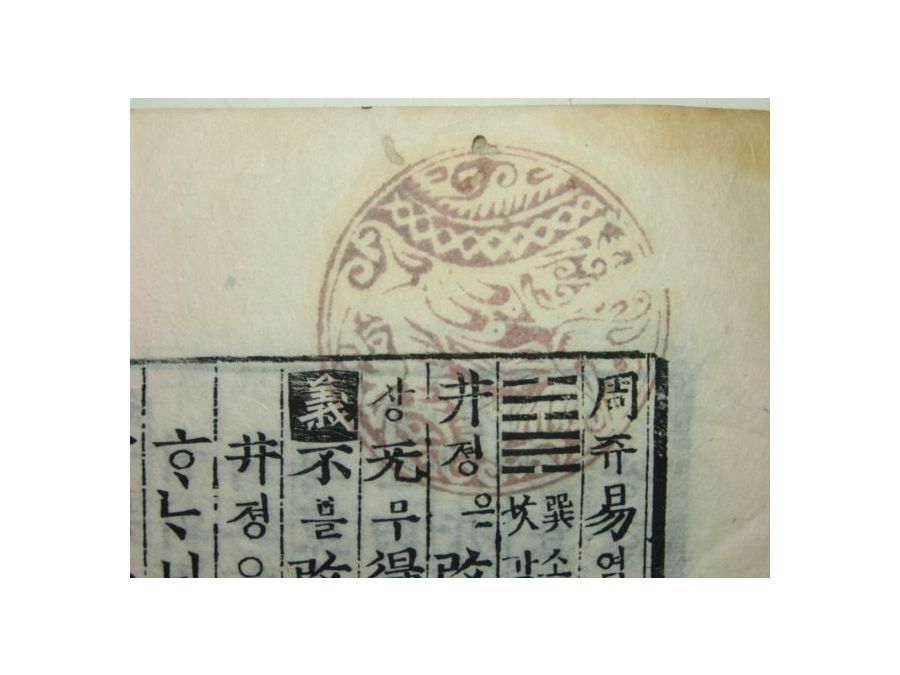 周쥬易역
䷯ 巽
坎
井졍은改
상无무得
義不블改
井졍
ᄒᆞᄂ